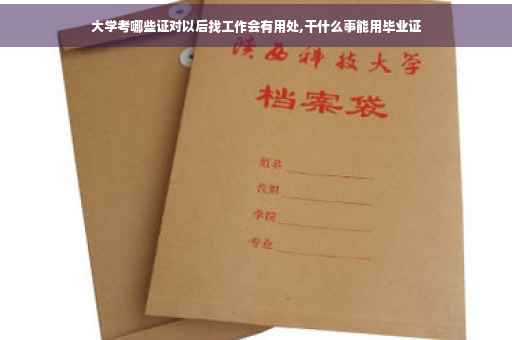 大学考哪些证对以后找工作会有用处,干什么事能用毕业证
陕西科技大学
档案袋
姓名
学院
专业